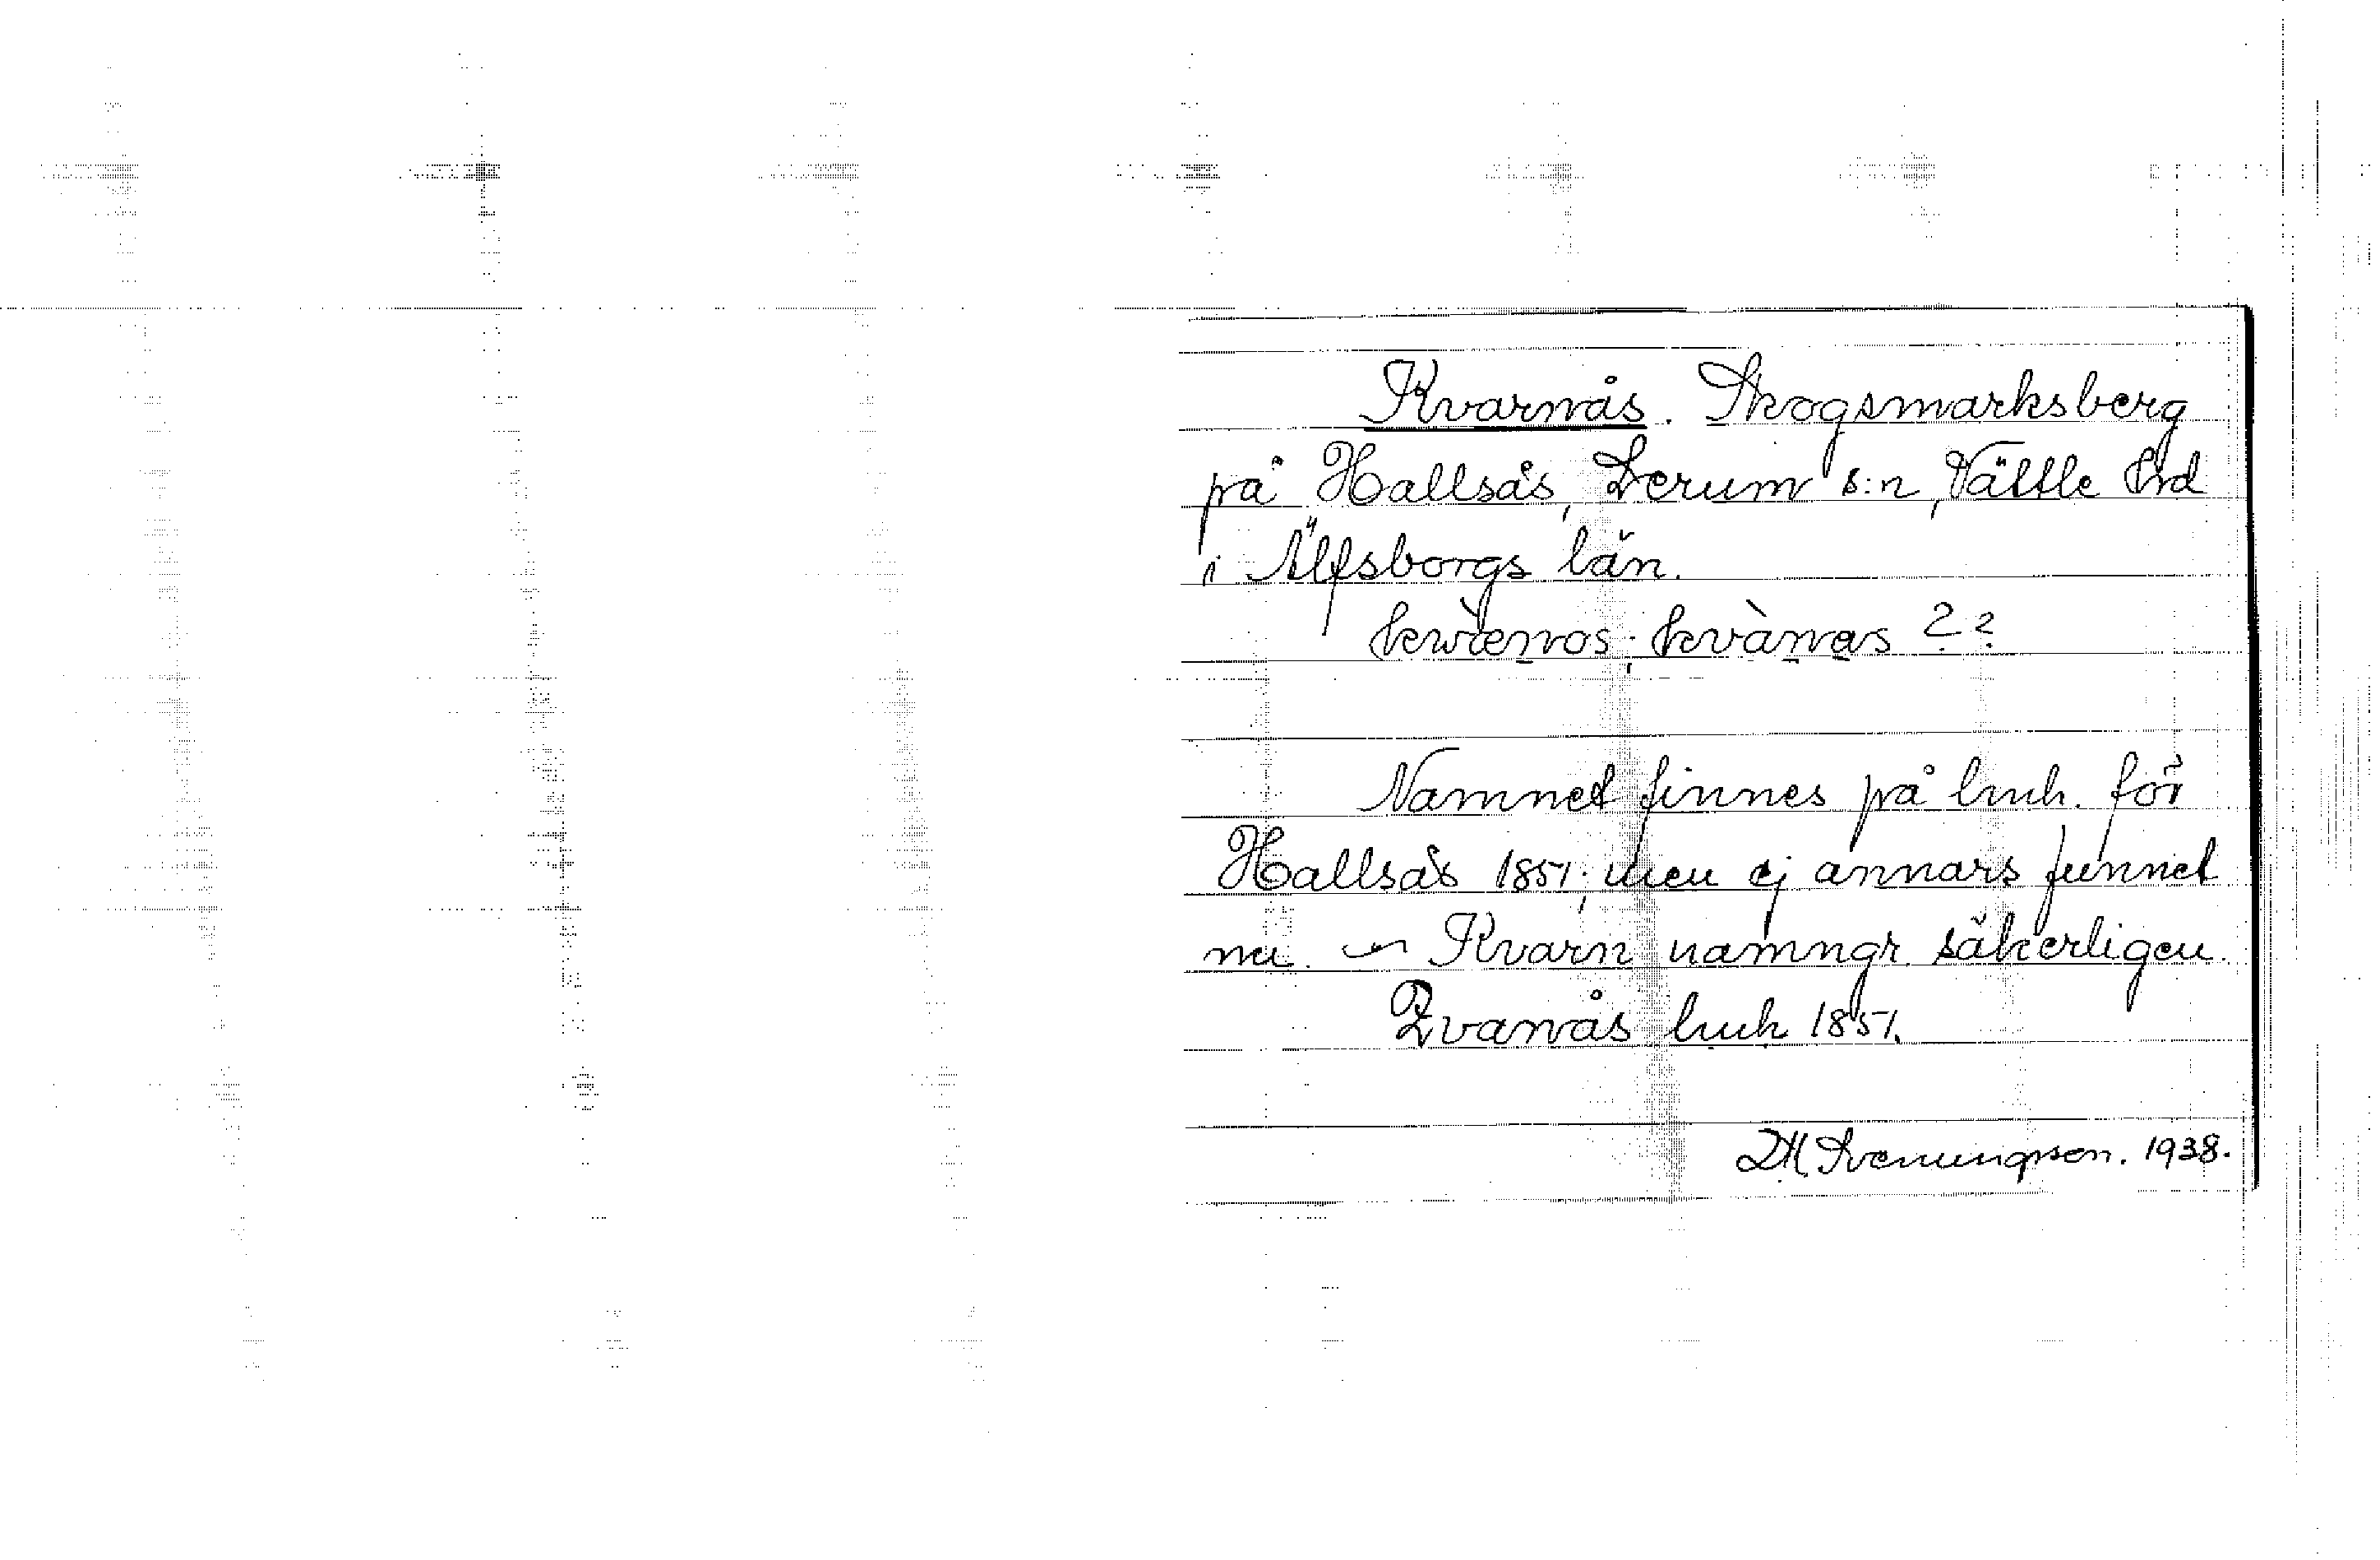 Kvarnås. Skogsmarksberg
på Hallsås, Lerum s:n, Vättle hrd
i Älfsborgs län.
??
Namnet finnes på lmk. för
Hallsås 1851; men ej annars funnet
nu. ~ Kvarn namngr. säkerligen.
Qvanås lmk 1851.
DH Svenningsson. 1938.